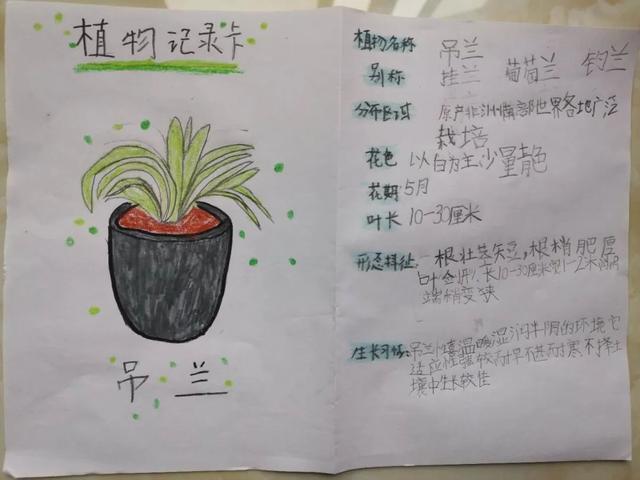 植物记录卡
吊兰
植物名称 吊兰
别称 挂兰 葡萄兰 钓兰
分布区域 原产非洲南部世界各地广泛
栽培
花色 以白为主少量
花期 5月
叶长 10-30厘米
形态特征: 根壮茎短,根梢肥厚
叶剑形,长10-30厘米宽1-2米向两
端稍变狭
生长习性: 吊兰性喜温暖湿润半阴的环境它
适应性强较耐旱不甚耐寒不择土
壤中生长较佳